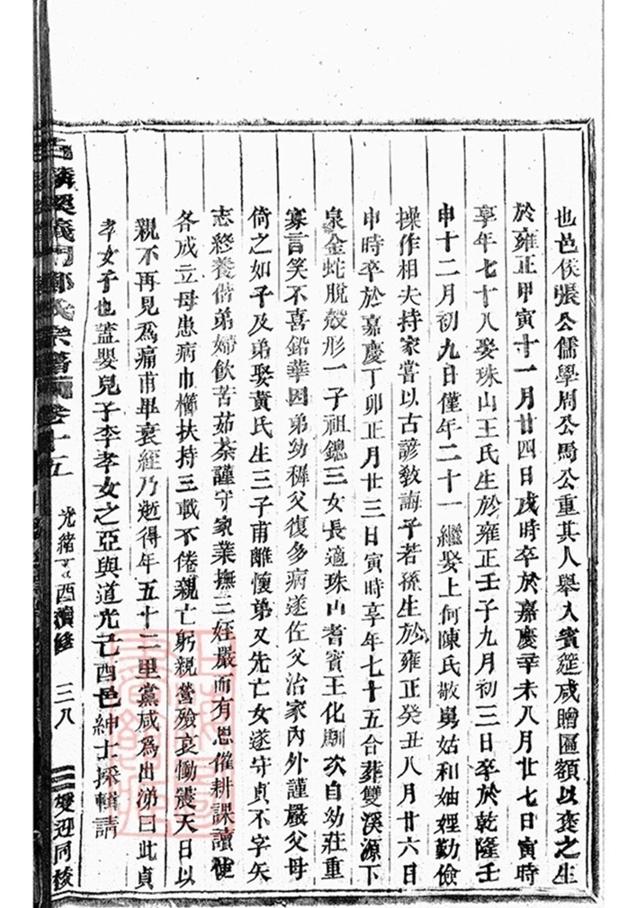 也邑侯張公儒學周公馬公重其人舉入賓筵咸贈匾額以褒之生
於雍正甲寅十一月廿四日戌時卒於嘉慶辛未八月廿七日寅時
享年七十八娶珠山王氏生於雍正壬子九月初三日卒於乾隆壬
申十二月初九日僅年二十一繼娶上何陳氏敬舅姑和妯娌勤儉
操作相夫持家嘗以古諺敎誨子若孫生於雍正癸丑八月廿六日
申時卒於嘉慶丁卯正月廿三日寅時享年七十五合葬雙溪源下
泉金蛇脫殼形一子祖鏓三女長適珠山耆賓王化 次自幼莊重
寡言笑不喜鉛華因弟幼穉父復多病遂佐父治家內外謹嚴父母
倚之如子及弟娶黃氏生三子甫離懷弟又先亡女遂守貞不字矢
志終養偕弟婦飲苦茹荼謹守家業撫三姪嚴而有恩催耕課讀使
各成立母患病巾櫛扶持三載不倦親亡躬親營殮哀慟震天日以
親不再見爲痛甫畢衰絰乃逝得年五十二里黨咸爲出涕曰此貞
孝女子也蓋嬰兒子李孝女之亞與道光己酉邑紳士採輯請
義門鄭氏宗譜 卷十五
光緒丁酉續修
三八
雙迎同梭